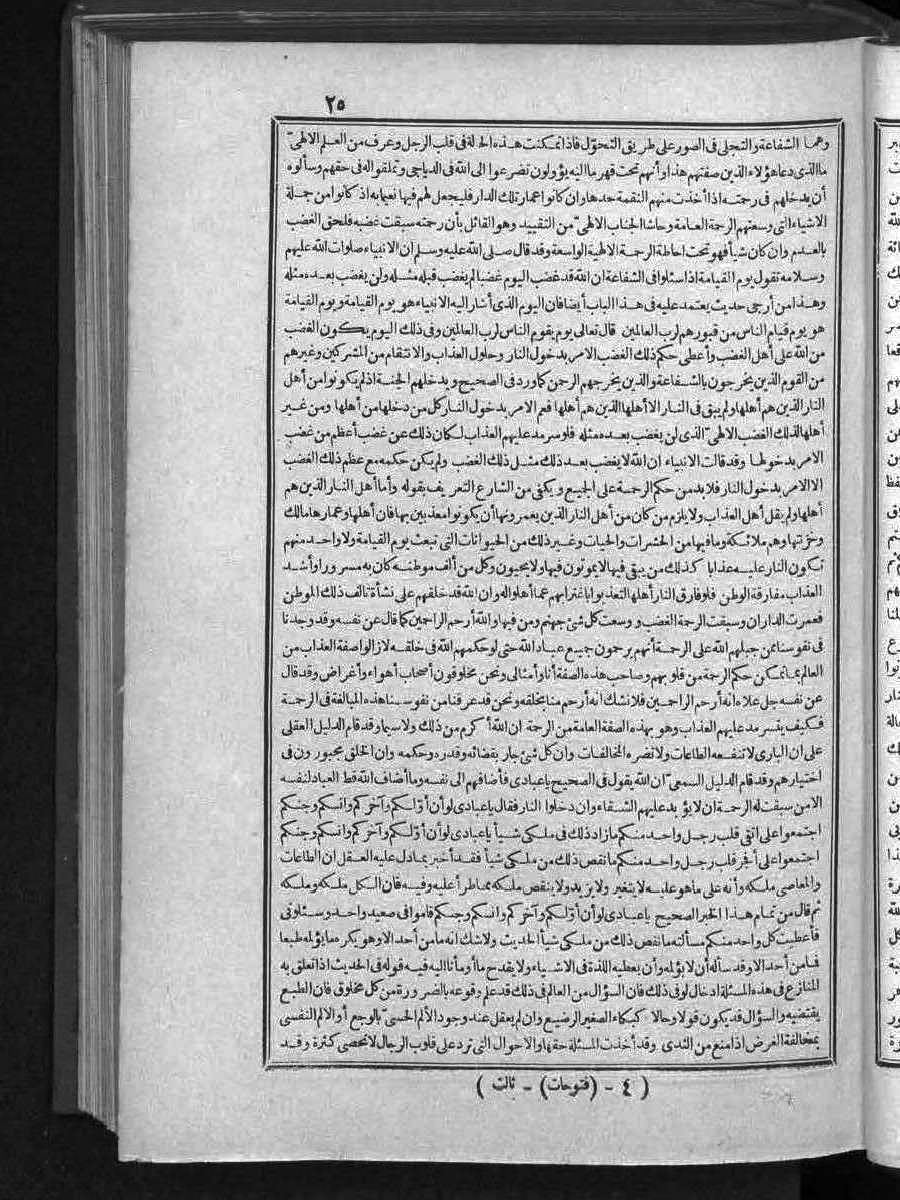 ٢٥
وهما الشفاعة والتجلى فى الصور على طريق التحوّل فاذا تمكنت هذه الحالة فى قلب الرجل وعرف من العلم الالهىّ
ما الذى دعا هؤلاء الذين صفتهم هذا وأنهم تحت قهر ما اليه يؤولون تضرعوا الى الله فى الدياجى وتملقوا له فى حقهم وسألوه
أن يدخلهم فى رحمته اذا أخذت منهم النقمة حدها وان كانوا عمار تلك الدار فليجعل لهم فيها نعيما به اذ كانوا من جملة
الاشياء التى وسعتهم الرحمة العامة وحاشا الجناب الالهىّ من التقييد وهو القائل بأن رحمته سبقت غضبه فلحق الغضب
بالعدم وان كان شيأ فهو تحت احاطة الرحمة الالهية الواسعة وقد قال صلى الله عليه وسلم ان الانبياء صلوات الله عليهم
وسلامه تقول يوم القيامة اذا سئلوا فى الشفاعة ان الله قد غضب اليوم غضبا لم يغضب قبله مثله ولن يغضب بعده مثله
وهذا من أرجى حديث يعتمد عليه فى هذا الباب أيضا فان اليوم الذى أشار اليه الانبياء هو يوم القيامة ويوم القيامة
هو يوم قيام الناس من قبورهم لرب العالمين قال تعالى يوم يقوم الناس لرب العالمين وفى ذلك اليوم يكون الغضب
من الله على أهل الغضب وأعطى حكم ذلك الغضب الامر بدخول النار وحلول العذاب والانتقام من المشركين وغيرهم
من القوم الذين يخرجون بالشفاعة والذين يخرجهم الرحمن كما ورد فى الصحيح ويدخلهم الجنة اذ لم يكونوا من أهل
النار الذين هم أهلها ولم يبق فى النار الا أهلها الذين هم أهلها فعم الامر بدخول النار كل من دخلها من أهلها ومن غير
أهلها لذلك الغضب الالهىّ الذى لن يغضب بعده مثله فلو سرمد عليهم العذاب لكان ذلك عن غضب أعظم من غضب
الامر بدخولها وقد قالت الانبياء ان الله لا يغضب بعد ذلك مثل ذلك الغضب ولم يكن حكمه مع عظم ذلك الغضب
الا الامر بدخول النار فلا بد من حكم الرحمة على الجميع ويكفى من الشارع التعريف بقوله وأما أهل النار الذين هم
أهلها ولم يقل أهل العذاب ولا يلزم من كان من أهل النار الذين يعمرونها أن يكونوا معذبين بها فان أهلها وعمارها مالك
وخزنتها وهم ملائكة وما فيها من الحشرات والحيات وغير ذلك من الحيوانات التى تبعث يوم القيامة ولا واحد منهم
تكون النار عليه عذابا كذلك من يبقى فيها لا يموتون فيها ولا يحيون وكل من ألف موطنه كان به مسرورا وأشد
العذاب مفارقة الوطن فلو فارق النار أهلها لتعذبوا باغترابهم عما أهلوا له وان الله قد خلقهم على نشأة تألف ذلك الموطن
فعمرت الداران وسبقت الرحمة الغضب ووسعت كل شئ جهنم ومن فيها والله أرحم الراحمين كما قال عن نفسه وقد وجدنا
فى نفوسنا ممن جبلهم الله على الرحمة أنهم يرحمون جميع عباد الله حتى لو حكمهم الله فى خلقه لازالوا صفة العذاب من
العالم بما تمكن حكم الرحمة من قلوبهم وصاحب هذه الصفة أنا وأمثالى ونحن مخلوقون أصحاب أهواء وأغراض وقد قال
عن نفسه جل علاه انه أرحم الراحمين فلا نشك انه أرحم منا بخلقه ونحن قد عرفنا من نفوسنا هذه المبالغة فى الرحمة
فكيف يتسرمد عليهم العذاب وهو بهذه الصفة العامة من الرحمة ان الله أكرم من ذلك ولا سيما وقد قام الدليل العقلى
على ان البارى لا تنفعه الطاعات ولا تضره المخالفات وان كل شئ جار بقضائه وقدره وحكمه وان الخلق مجبورون فى
اختيارهم وقد قام الدليل السمعىّ ان الله يقول فى الصحيح يا عبادى فأضافهم الى نفسه وما أضاف الله قط العباد لنفسه
الا من سبقت له الرحمة ان لا يؤبد عليهم الشقاء وان دخلوا النار فقال يا عبادى لو أن أوّلكم وآخركم وانسكم وجنكم
اجتمعوا على اتقى قلب رجل واحد منكم ما زاد ذلك فى ملكى شيأ يا عبادى لو أن أوّلكم وآخركم وانسكم وجنكم
اجتمعوا على أفجر قلب رجل واحد منكم ما نقص ذلك من ملكى شيأ فقد أخبر بما دل عليه العقل ان الطاعات
والمعاصى ملكه وأنه على ما هو عليه لا يتغير ولا يزيد ولا ينقص ملكه مما طرأ عليه وفيه فان الكل ملكه وملكه
ثم قال من تمام هذا الخبر الصحيح يا عبادى لو أن أوّلكم وآخركم وانسكم وجنكم قاموا فى صعيد واحد وسئلونى
فأعطيت كل واحد منكم مسألته ما نقص ذلك من ملكى شيأ الحديث ولا شك انه ما من أحد الا وهو يكره ما يؤلمه طبعا
فما من أحد الا وقد سأله أن لا يؤلمه وأن يعطيه اللذة فى الاشياء ولا يقدح ما أومأنا اليه فيه قوله فى الحديث اذا تعلق به
المنازع فى هذه المسئلة ادخال لو فى ذلك فان السؤال من العالم فى ذلك قد علم وقوعه بالضرورة من كل مخلوق فان الطبع
يقتضيه والسؤال قد يكون قولا وحالا كبكاء الصغير الرضيع وان لم يعقل عند وجود الألم الحسىّ بالوجع أو الالم النفسى
بمخالفة الغرض اذا منع من الثدى وقد أخذت المسئلة حقها والاحوال التى ترد على قلوب الرجال لا تحصى كثرة وقد
( ٤ - (فتوحات) - ثالث )